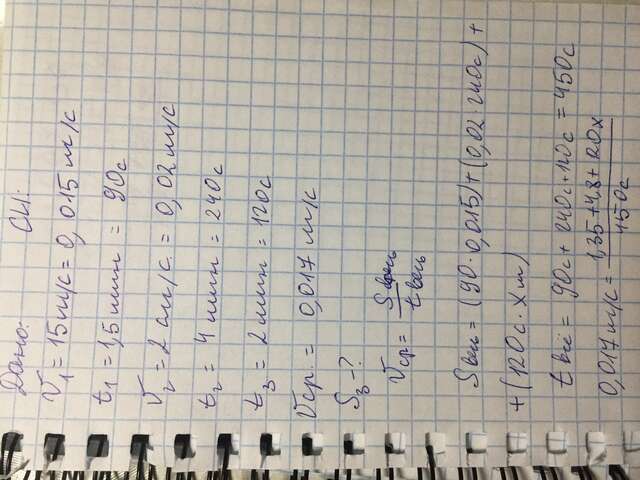 Дано: СИ:
V₁ = 15 м/с = 0,015 м/с
t₁ = 1,5 мин = 90с
V₂ = 2 см/с = 0,02 м/с
t₂ = 4 мин = 240с
t₃ = 2 мин = 120с
Vср. = 0,017 м/с
S₃ - ?
Vср = Sвесь / tвесь
Sвесь = (90 · 0,015) + (0,02 · 240с) +
+ (120с · Xм)
tвсё = 90с + 240с + 120с = 450с
0,017 м/с = 1,35 + 4,8 + 120x / 450с